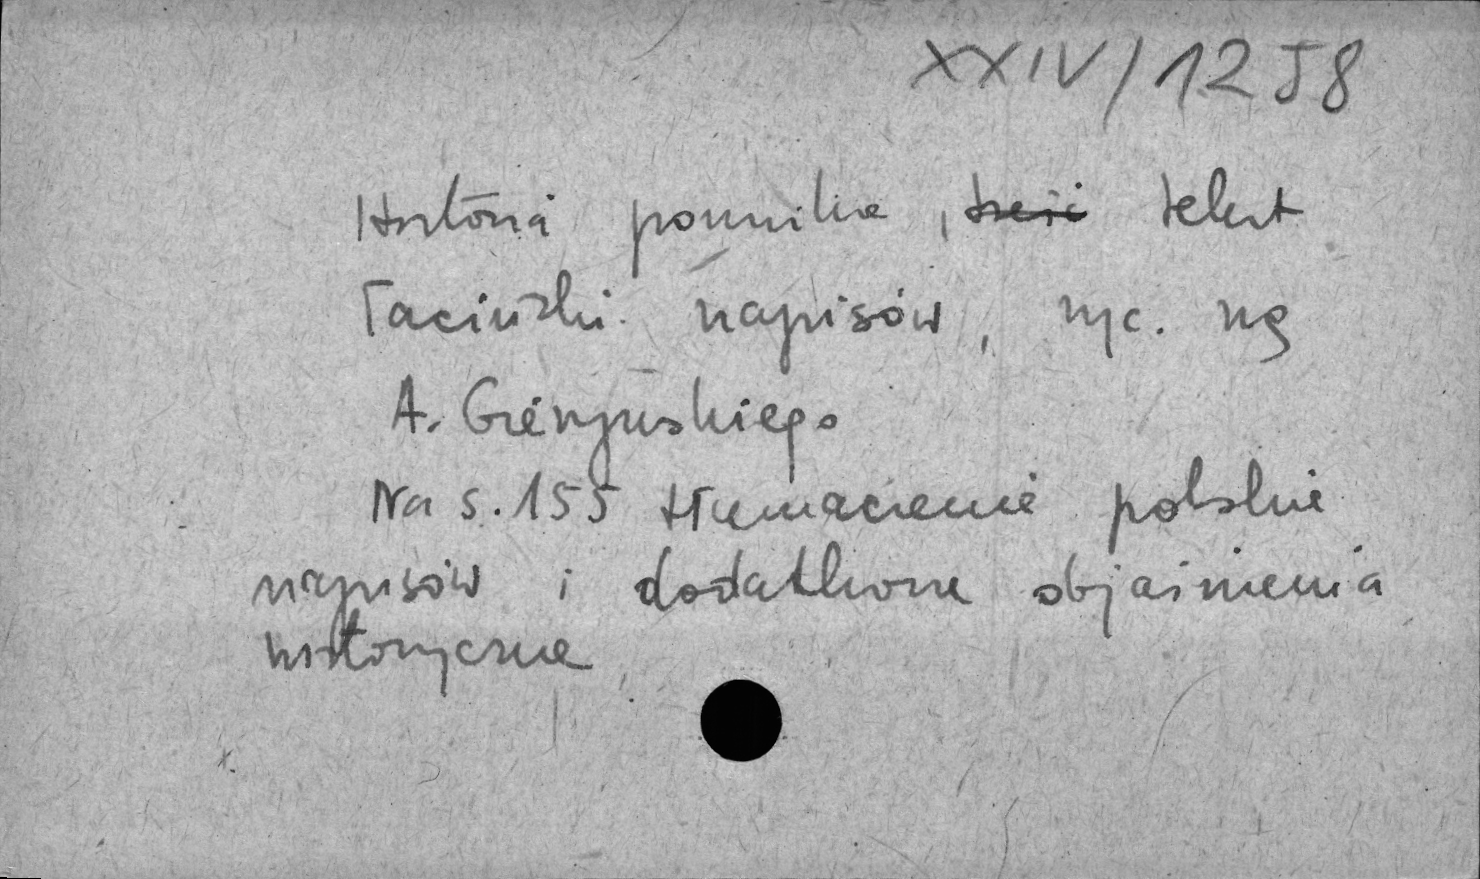 XXIV/1258
Historia pomnika, ~~treść~~ tekst
łaciński napisów, ryc. wg
A. Gierymskiego
Na s. 155 tłumaczenie polskie
napisów i dodatkowe objaśnienia
historyczne